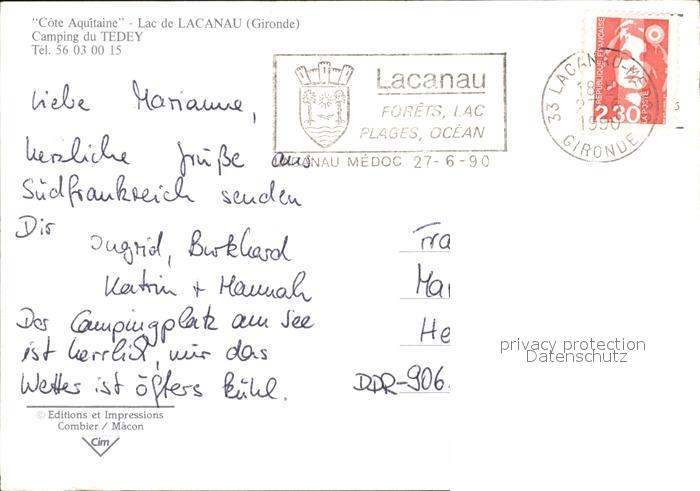 "Côte Aquitaine" - Lac de LACANAU (Gironde)
Camping du TEDEY
Tél. 56 03 00 15
Lacanau
FORÊTS, LAC
PLAGES, OCÉAN
LACANAU MÉDOC 27-6-90
33 LACANAU-MÉ
18 H
27-6
1990
GIRONDE
RÉPUBLIQUE FRANÇAISE
2,30
LA POSTE
Liebe Marianne,
herzliche Grüße aus
Südfrankreich senden
Dir
Ingrid, Burkhard
Katrin + Hannah
Der Campingplatz am See
ist herrlich, nur das
Wetter ist öfters kühl.
Fra
Mar
He
DDR-906.
privacy protection
Datenschutz
© Editions et Impressions
Combier / Mâcon
Cim